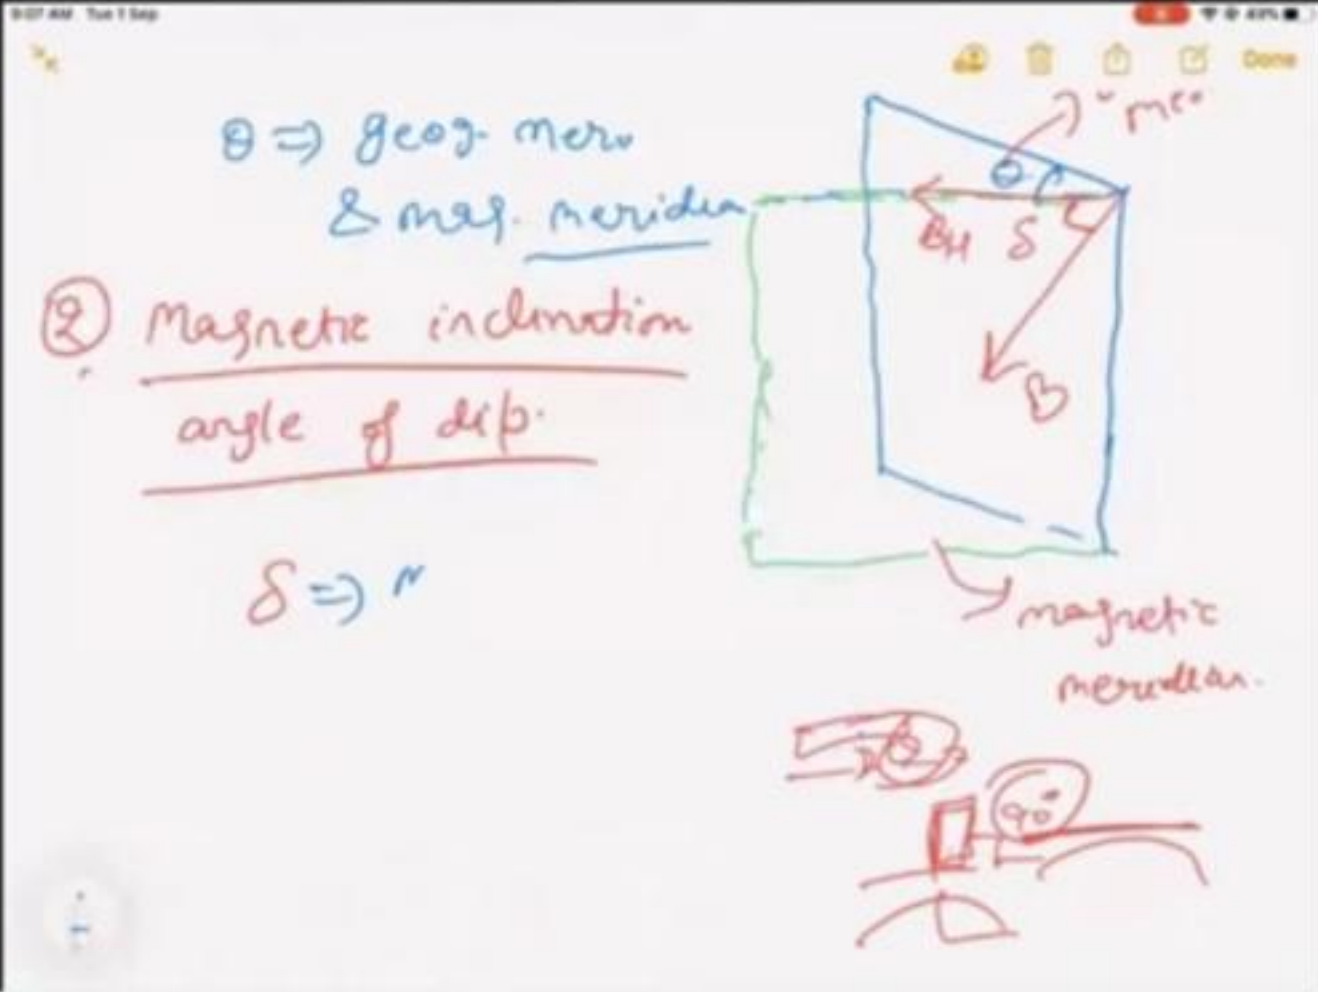 9:07 AM Tue 1 Sep
49%
Done
θ ⇒ geog. mer.
& mag. meridian
"MEO"
θ
BH δ
B
② Magnetic inclination
angle of dip.
δ ⇒
magnetic
meridian.
0°
90°